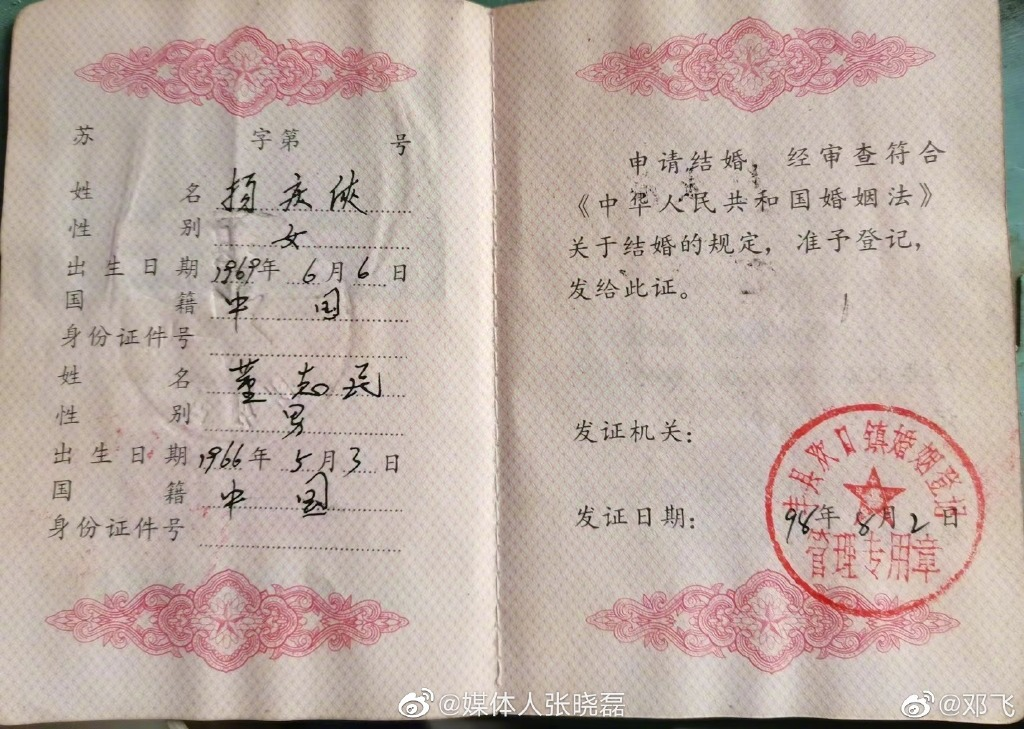 苏 字第 号
姓 名 杨庆侠
性 别 女
出生日期 1969年 6月 6日
国 籍 中 国
身份证件号
姓 名 董志民
性 别 男
出生日期 1966年 5月 3日
国 籍 中 国
身份证件号
申请结婚,经审查符合
《中华人民共和国婚姻法》
关于结婚的规定,准予登记,
发给此证。
发证机关:
发证日期: 98年 8月 2日
丰县欢口镇婚姻登记
管理专用章
@媒体人张晓磊
@邓飞